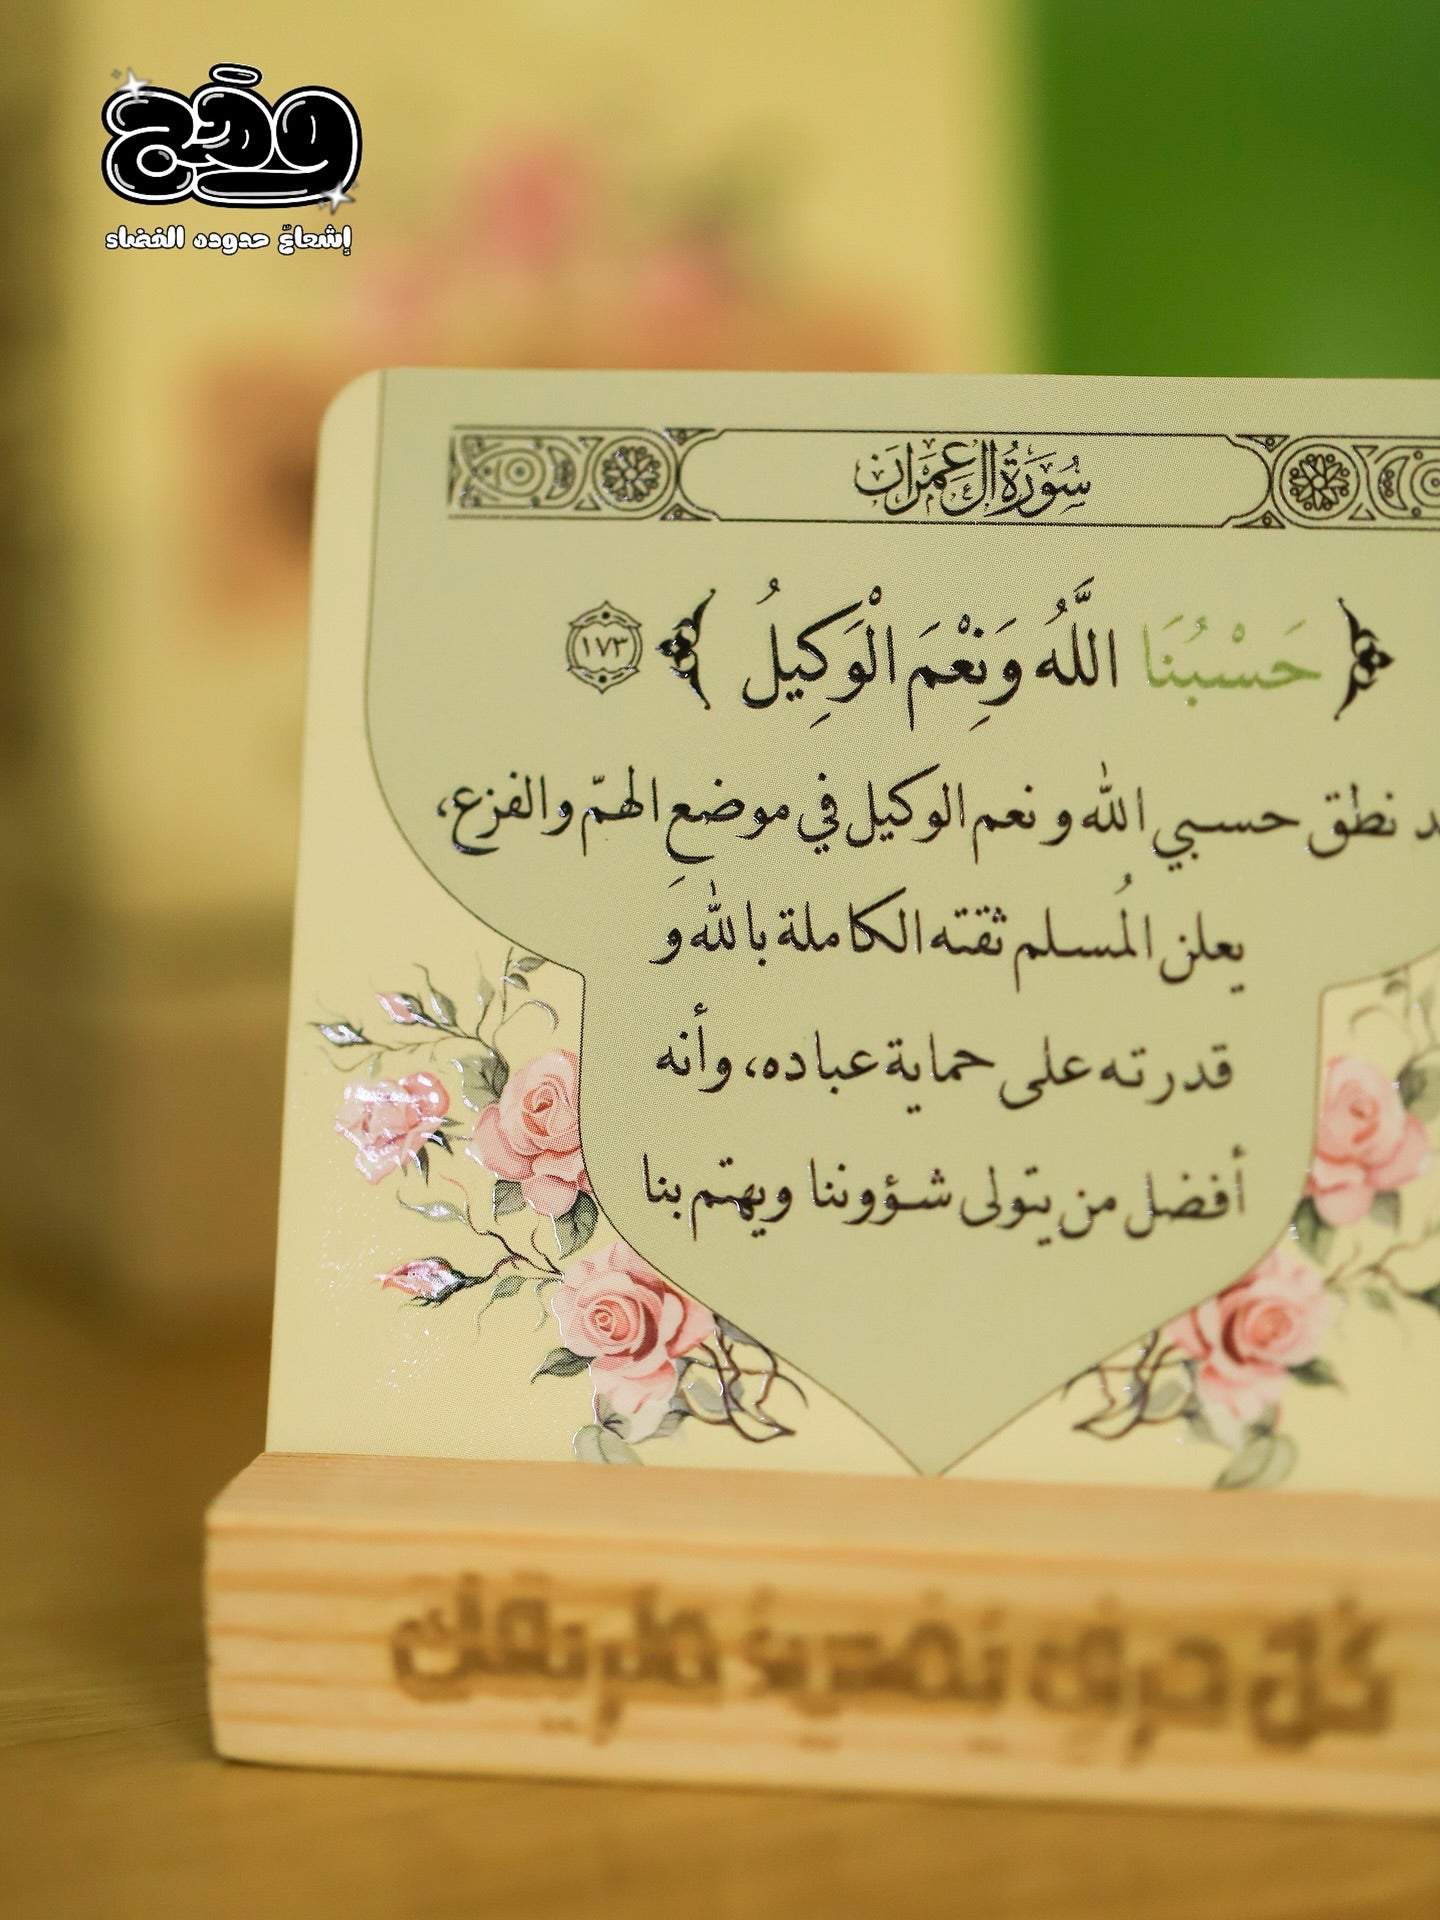 وهج
إشعاعٌ حدوده الفضاء
سُورَةُ آلِ عِمْرَان
﴿حَسْبُنَا اللَّهُ وَنِعْمَ الْوَكِيلُ﴾ ١٧٣
نطق حسبي الله و نعم الوكيل في موضعِ الهمّ والفزع،
يعلن المُسلم ثقته الكاملة بالله وَ
قدرته على حماية عباده، وأنه
أفضل من يتولى شؤوننا ويهتم بنا
كُلّ حرفٍ يُضيءُ طريقك